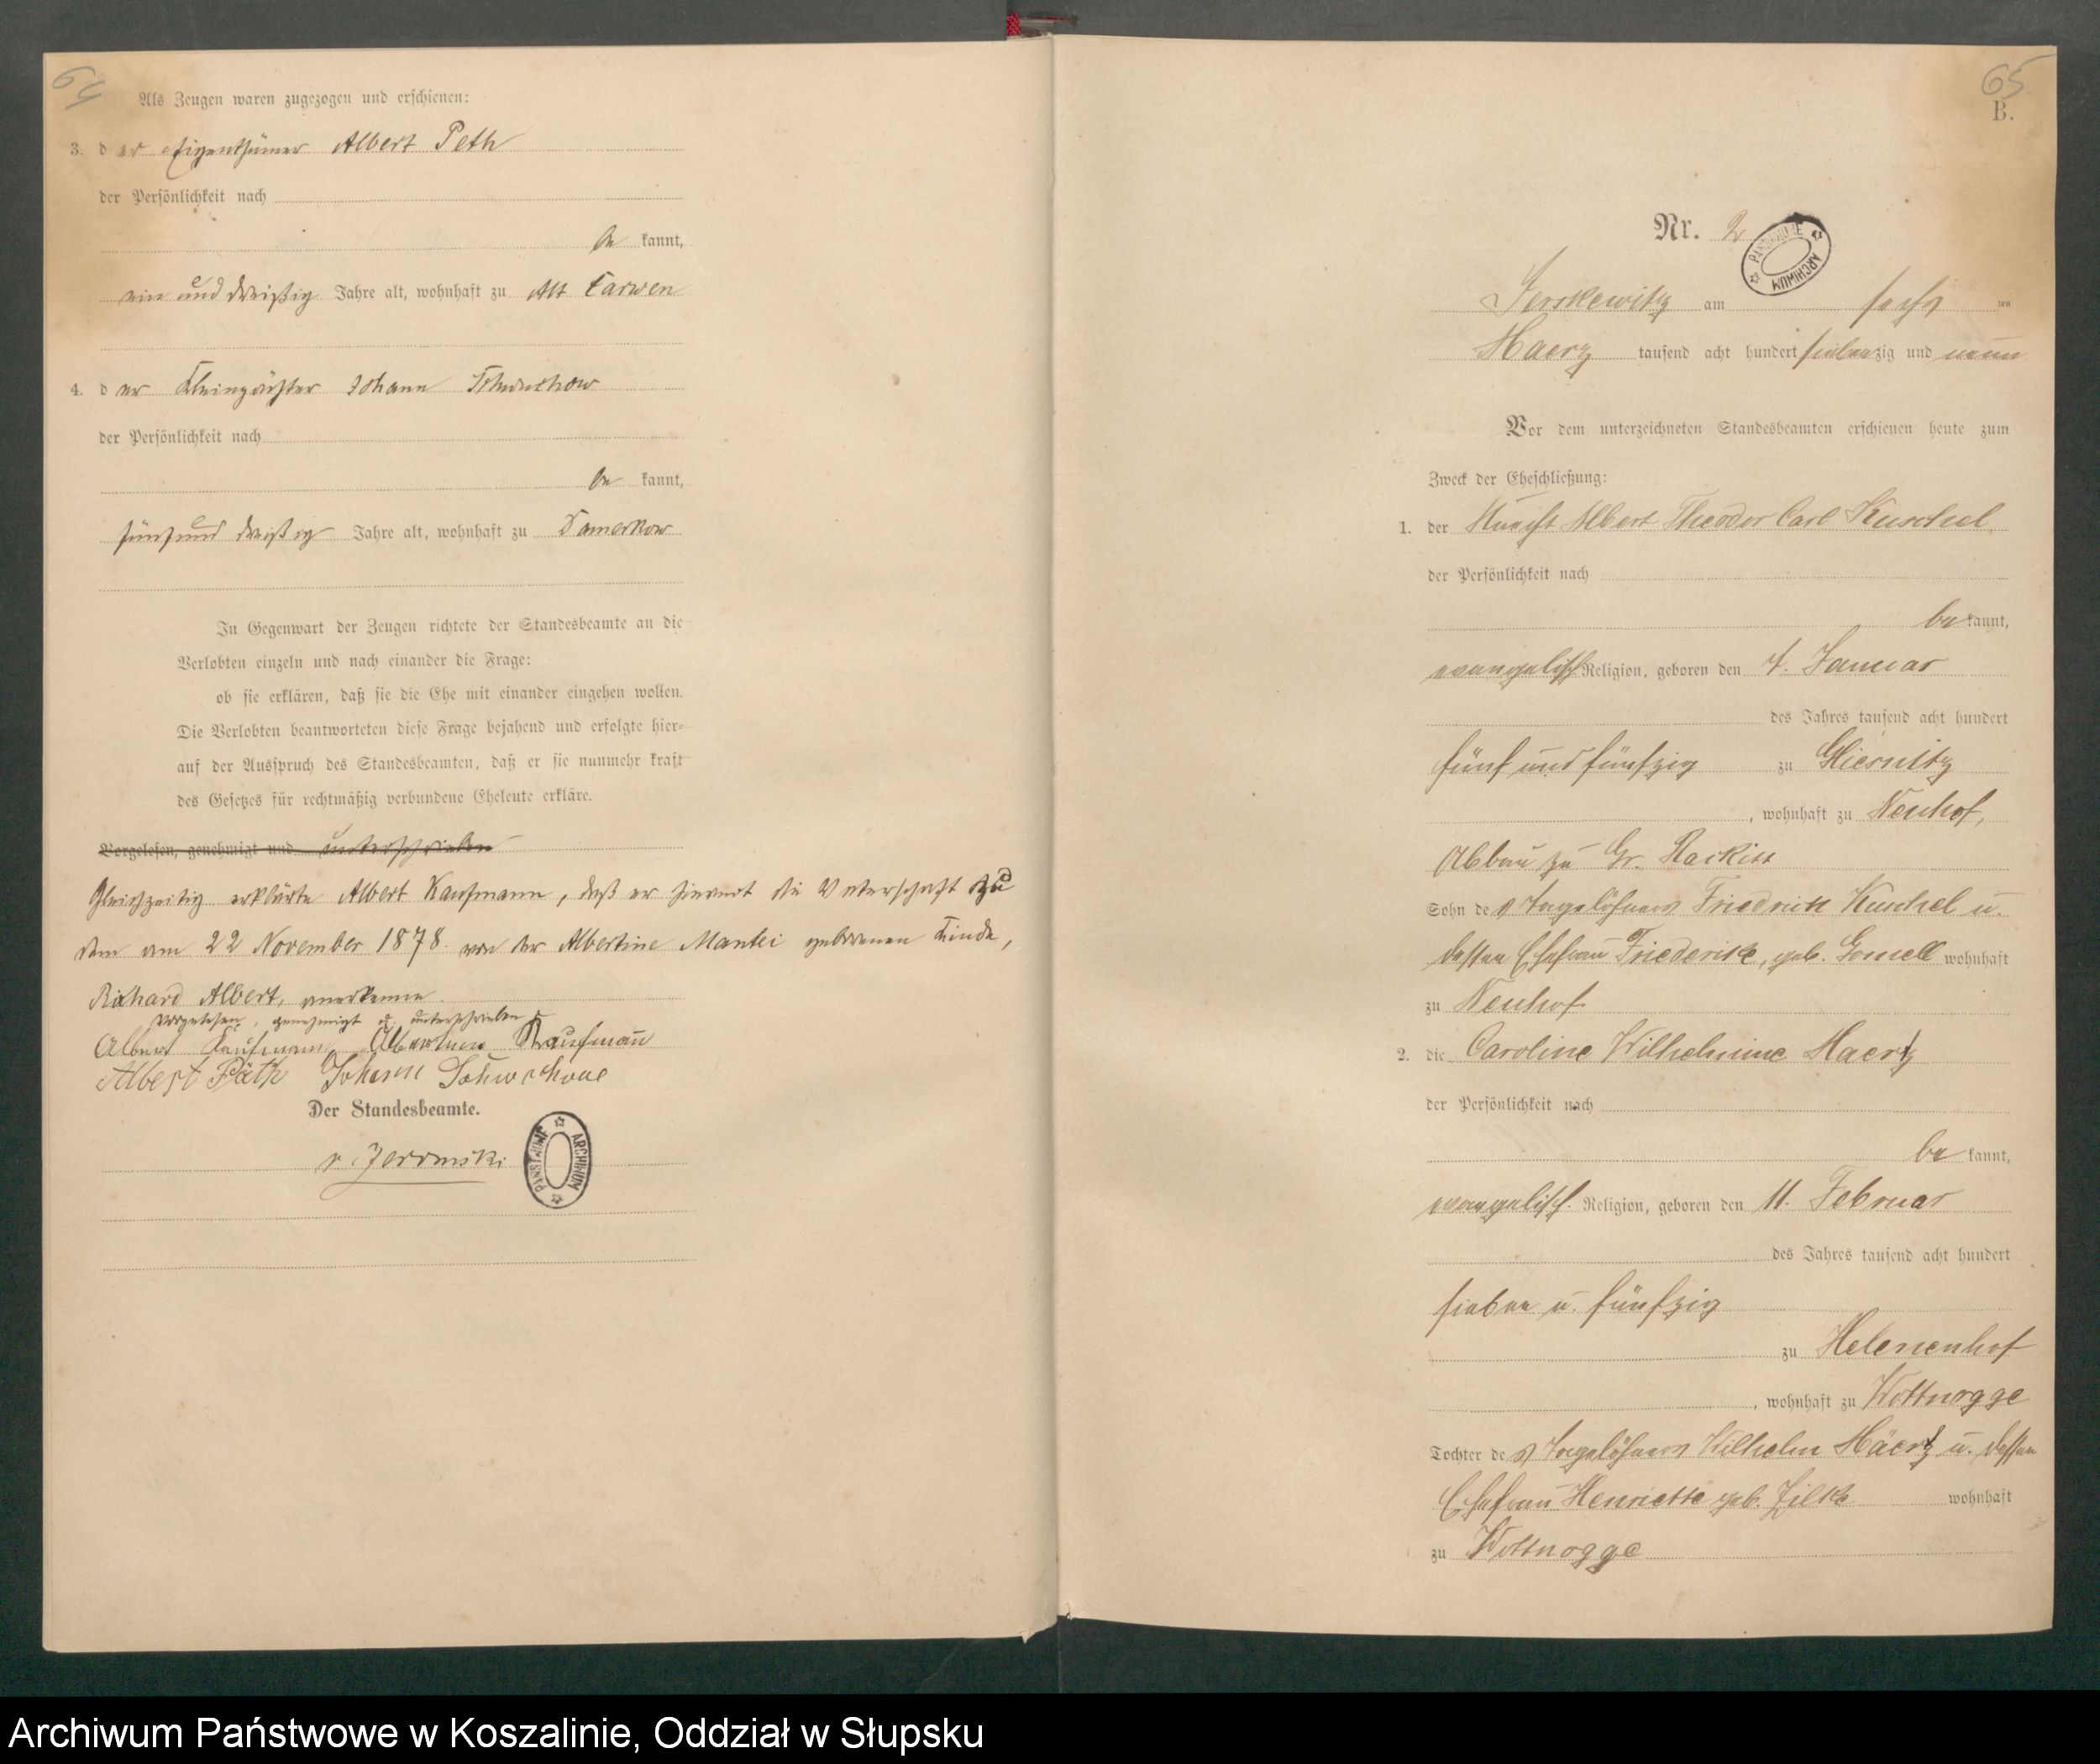 64
Als Zeugen waren zugezogen und erschienen:
3. der Eigenthümer Albert Peth
der Persönlichkeit nach
be kannt,
ein und dreißig Jahre alt, wohnhaft zu Alt Carwen
4. der Johann
der Persönlichkeit nach
be kannt,
fünf und dreißig Jahre alt, wohnhaft zu Damerkow
In Gegenwart der Zeugen richtete der Standesbeamte an die
Verlobten einzeln und nach einander die Frage:
ob sie erklären, daß sie die Ehe mit einander eingehen wollen.
Die Verlobten beantworteten diese Frage bejahend und erfolgte hier-
auf der Ausspruch des Standesbeamten, daß er sie nunmehr kraft
des Gesetzes für rechtmäßig verbundene Eheleute erkläre.
Vorgelesen, genehmigt und unterschrieben
Gleichzeitig erklärte Albert Kaufmann, daß er hiermit die Vaterschaft zu
dem am 22 November 1878 von der Albertine Mantei geborenen Kinde,
Richard Albert, anerkenne.
Vorgelesen, genehmigt u. unterschrieben
Albert Kaufmann Albertine Kaufmann
Albert Päth Johann
Der Standesbeamte.
PAŃSTWOWE ARCHIWUM
65
B.
Nr. 2
PAŃSTWOWE ARCHIWUM
Jerskewitz am sechs ten
Maerz tausend acht hundert siebenzig und neun
Vor dem unterzeichneten Standesbeamten erschienen heute zum
Zweck der Eheschließung:
1. der Knecht Albert Theodor Carl Kuschel
der Persönlichkeit nach
be kannt,
evangelisch Religion, geboren den 4. Januar
des Jahres tausend acht hundert
fünf und fünfzig zu Gliesnitz
, wohnhaft zu Neuhof,
Abbau zu Gr. Rackitt
Sohn des Tagelöhners Friedrich Kuschel u.
dessen Ehefrau Friederike, geb. Gomell wohnhaft
zu Neuhof
2. die Caroline Wilhelmine Haertz
der Persönlichkeit nach
be kannt,
evangelisch. Religion, geboren den 11. Februar
des Jahres tausend acht hundert
sieben u. fünfzig
zu Helenenhof
, wohnhaft zu Wottnogge
Tochter des Tagelöhners Wilhelm Häertz u. dessen
Ehefrau Henriette geb. Zilke wohnhaft
zu Wottnogge
Archiwum Państwowe w Koszalinie, Oddział w Słupsku